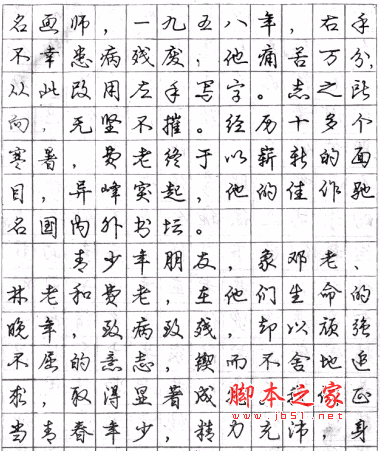 名画师，一九五八年，右手
不幸患病残废，他痛苦万分，
从此改用左手写字。志之所
向，无坚不摧。经历十多个
寒暑，费老终于以崭新的面
目，异峰突起，他的佳作驰
名国内外书坛。
青少年朋友，象邓老、
林老和费老，在他们生命的
晚年，致病致残，却以顽强
不屈的意志，锲而不舍地追
求，取得显著成 正
脚本之家
www.jb51.net
当青春年少，精力充沛，身